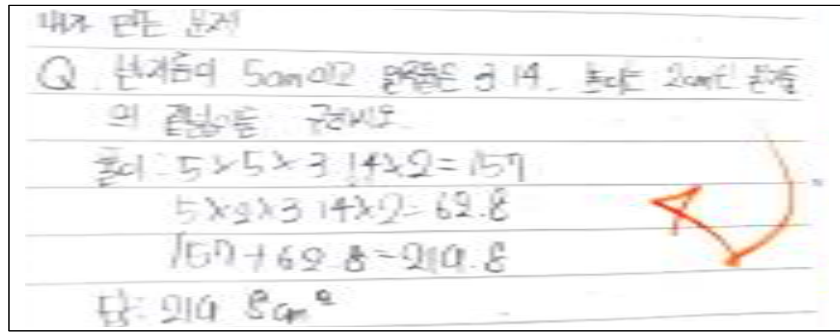 내가 만든 문제
Q. 반지름이 5cm이고 원주율은 3.14. 높이는 2cm인 원기둥
의 겉넓이를 구하시오.
풀이: 5×5×3.14×2=157
5×2×3.14×2=62.8
157+62.8=219.8
답: 219.8cm²